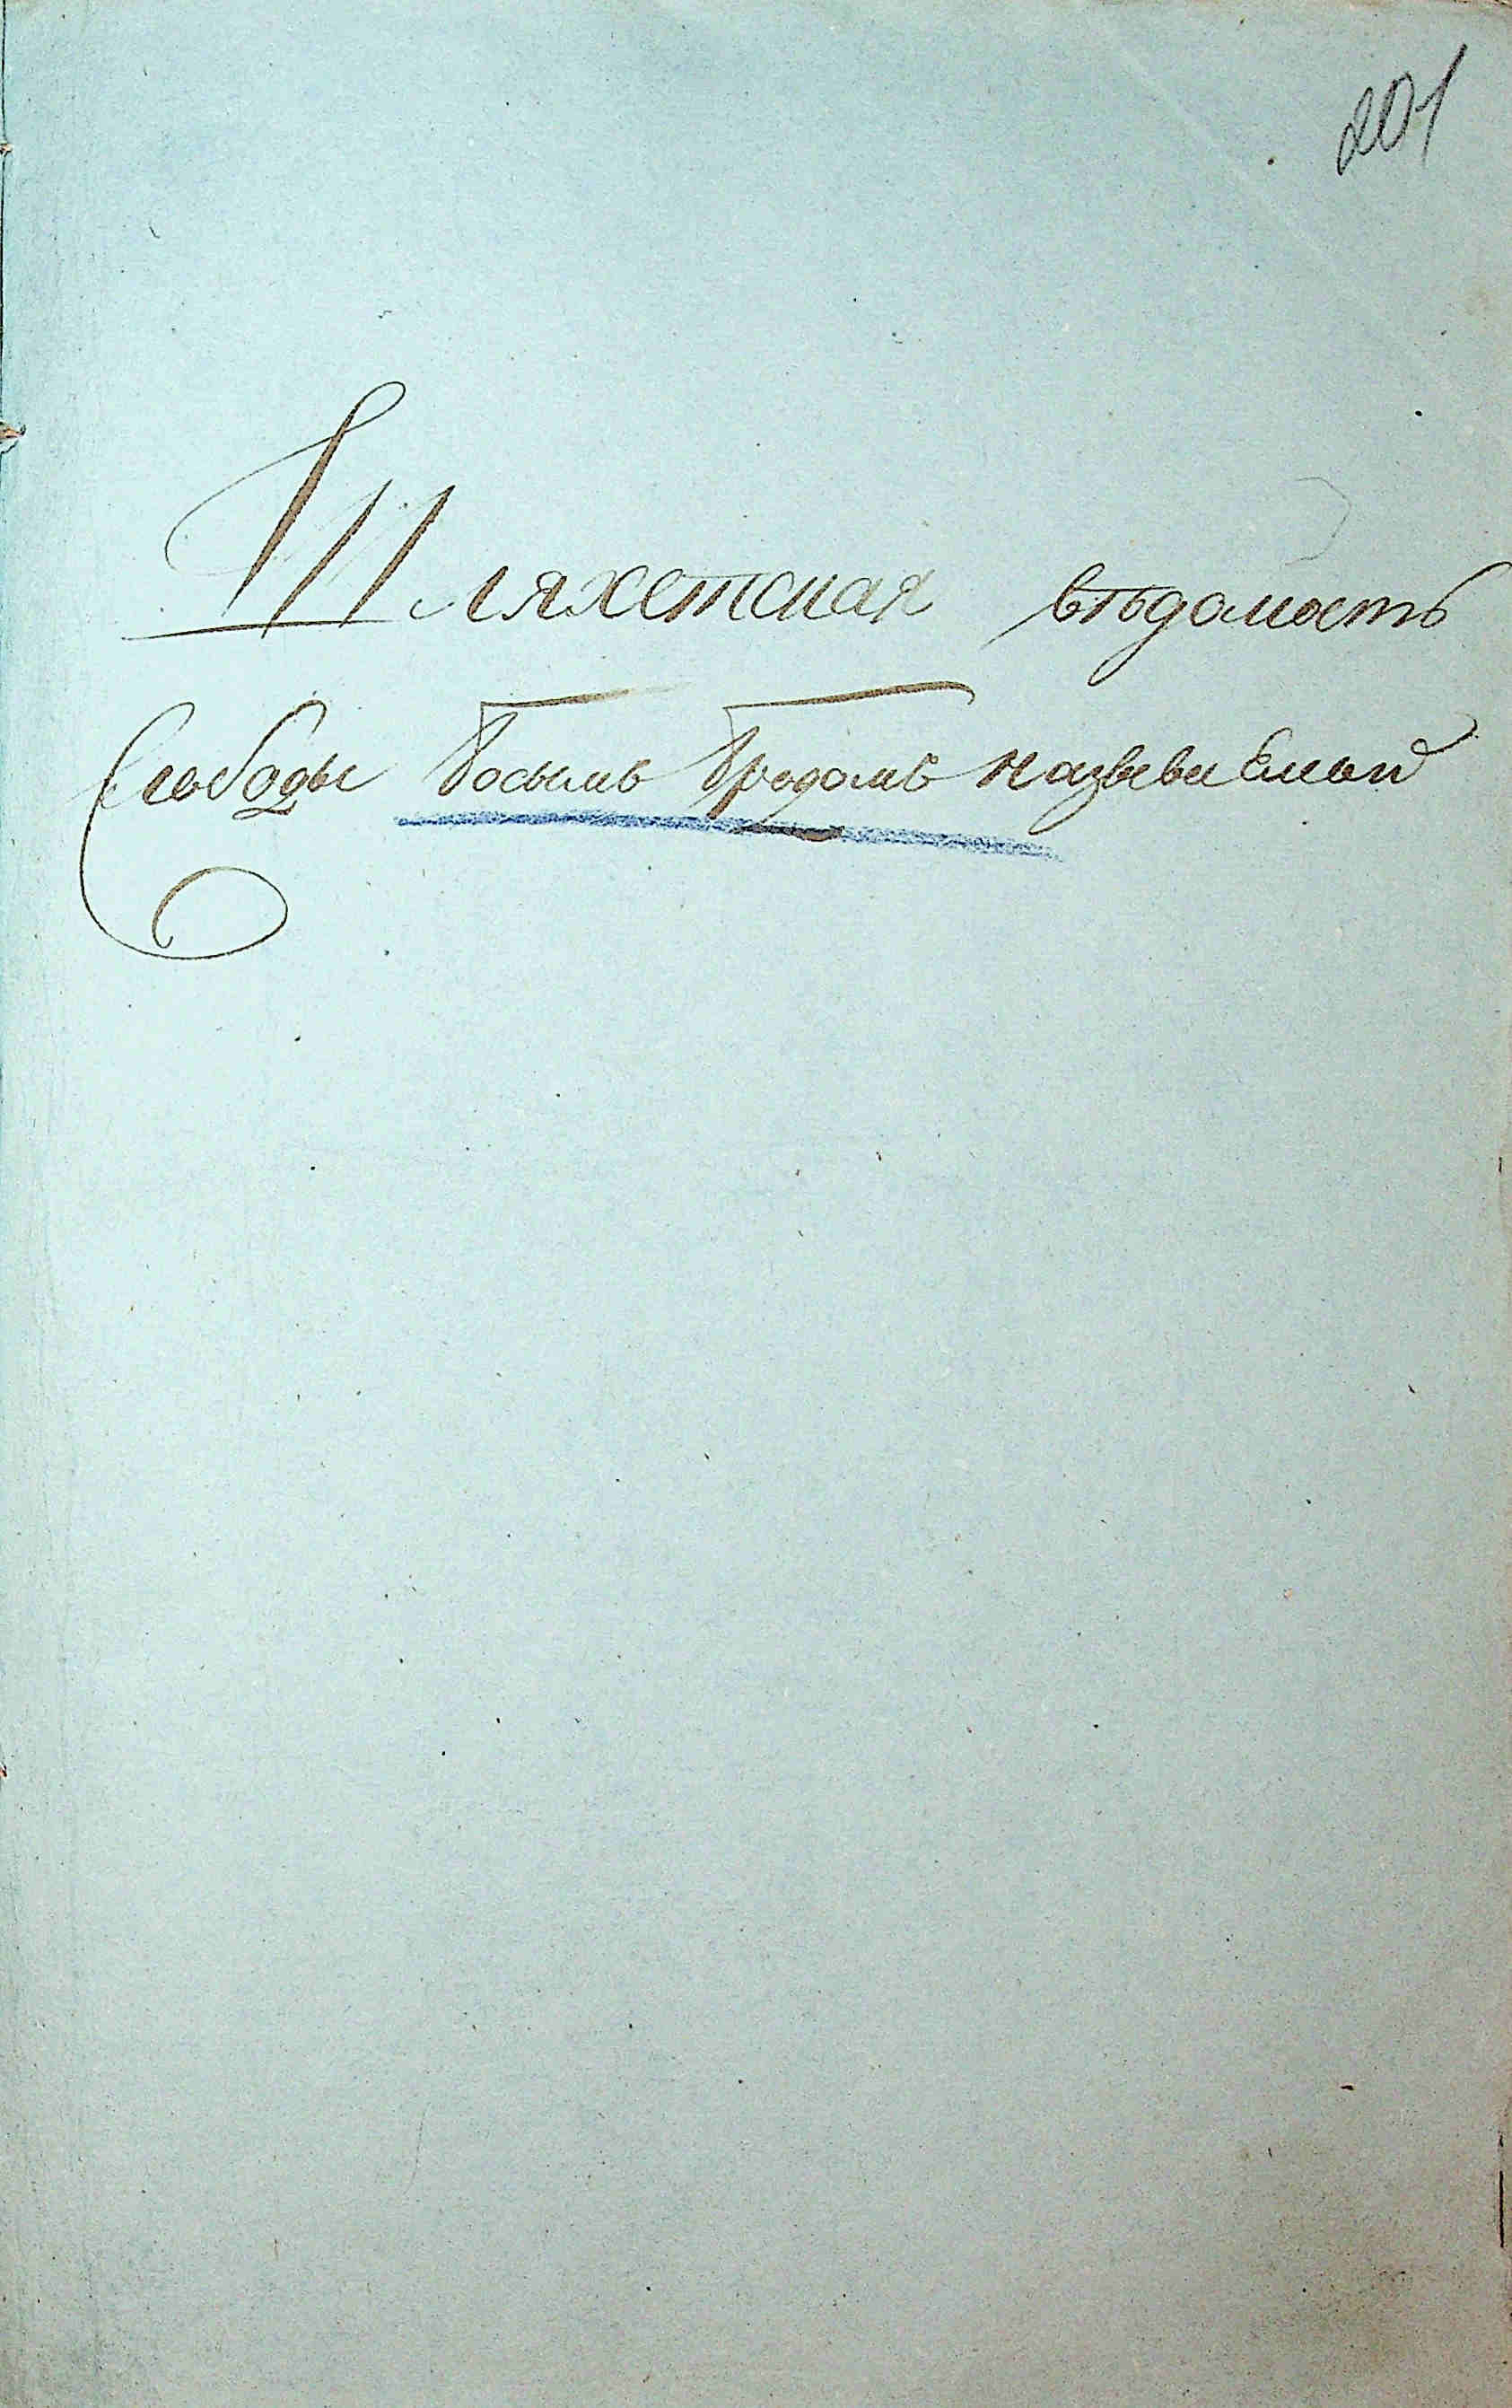 201
Шляхетская вѣдомость
Слободы Босымъ Бродомъ называемой